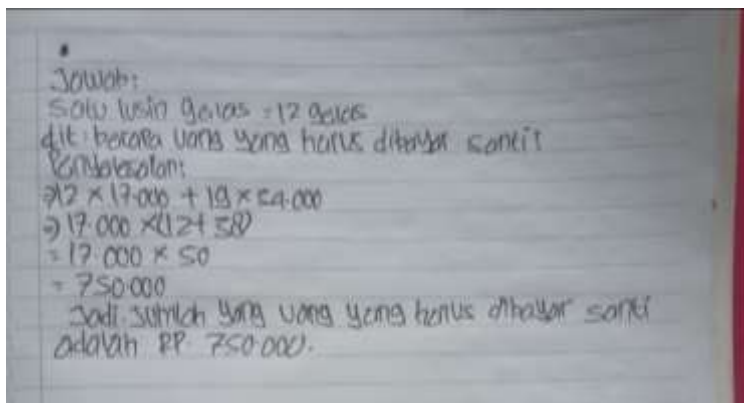 Jawab:
Satu lusin gelas = 12 gelas
dit: berapa uang yang harus dibayar santi?
Penyelesaian:
⇒ 12 × 17.000 + 19 × 34.000
⇒ 17.000 × (12 + 38)
= 17.000 × 50
= 750.000
Jadi jumlah yang uang yang harus dibayar santi
adalah RP 750.000.